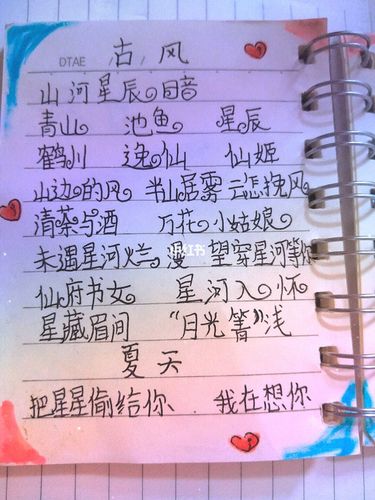 古风
DTAE
山河星辰日暗
青山 池鱼 星辰
鹤川 逸仙 仙姬
山边的风 半山居雾 云怎挽风
清茶与酒 万花小姑娘
未遇星河烂漫 望穿星河等你
小红书
仙府书女 星河入怀
星藏眉间 “月光箐”浅
夏天
把星星偷给你 我在想你